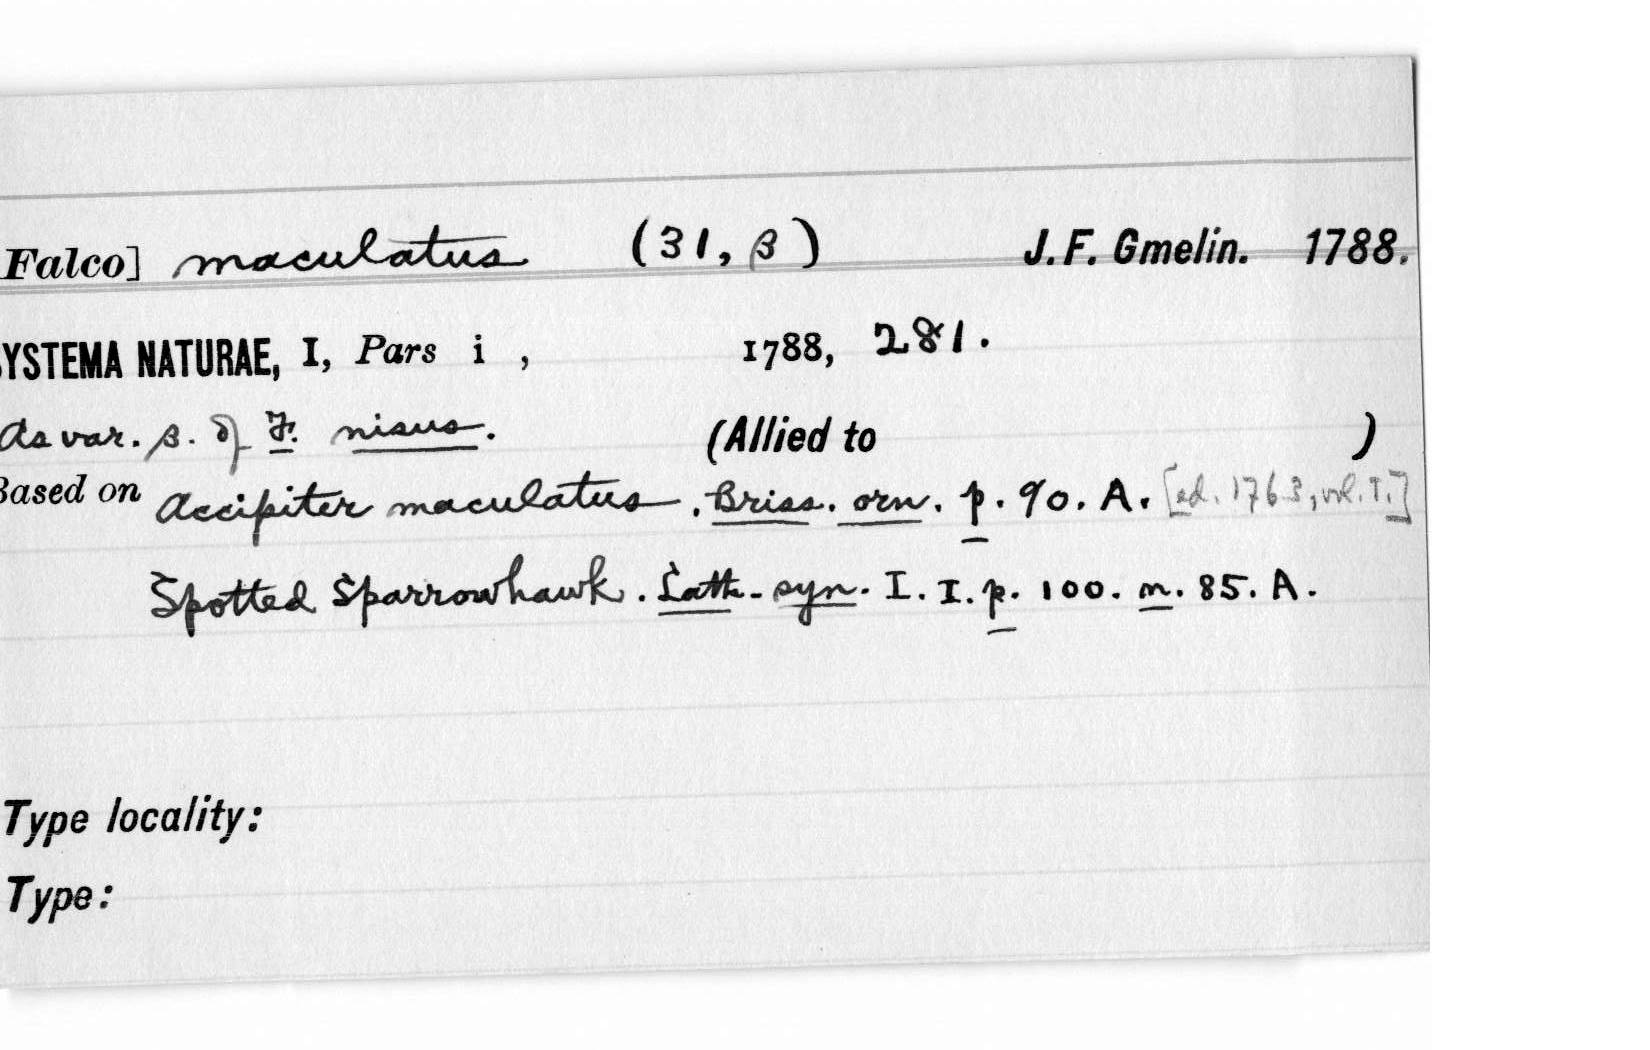 Falco] maculatus (31, β) J. F. Gmelin. 1788.
YSTEMA NATURAE, I, Pars i , 1788, 281.
As var. β. of F. nisus. (Allied to )
Based on Accipiter maculatus. Briss. orn. p. 90. A. [ed. 1763, vol. I.]
Spotted Sparrowhawk. Lath. syn. I. I. p. 100. n. 85. A.
Type locality:
Type: